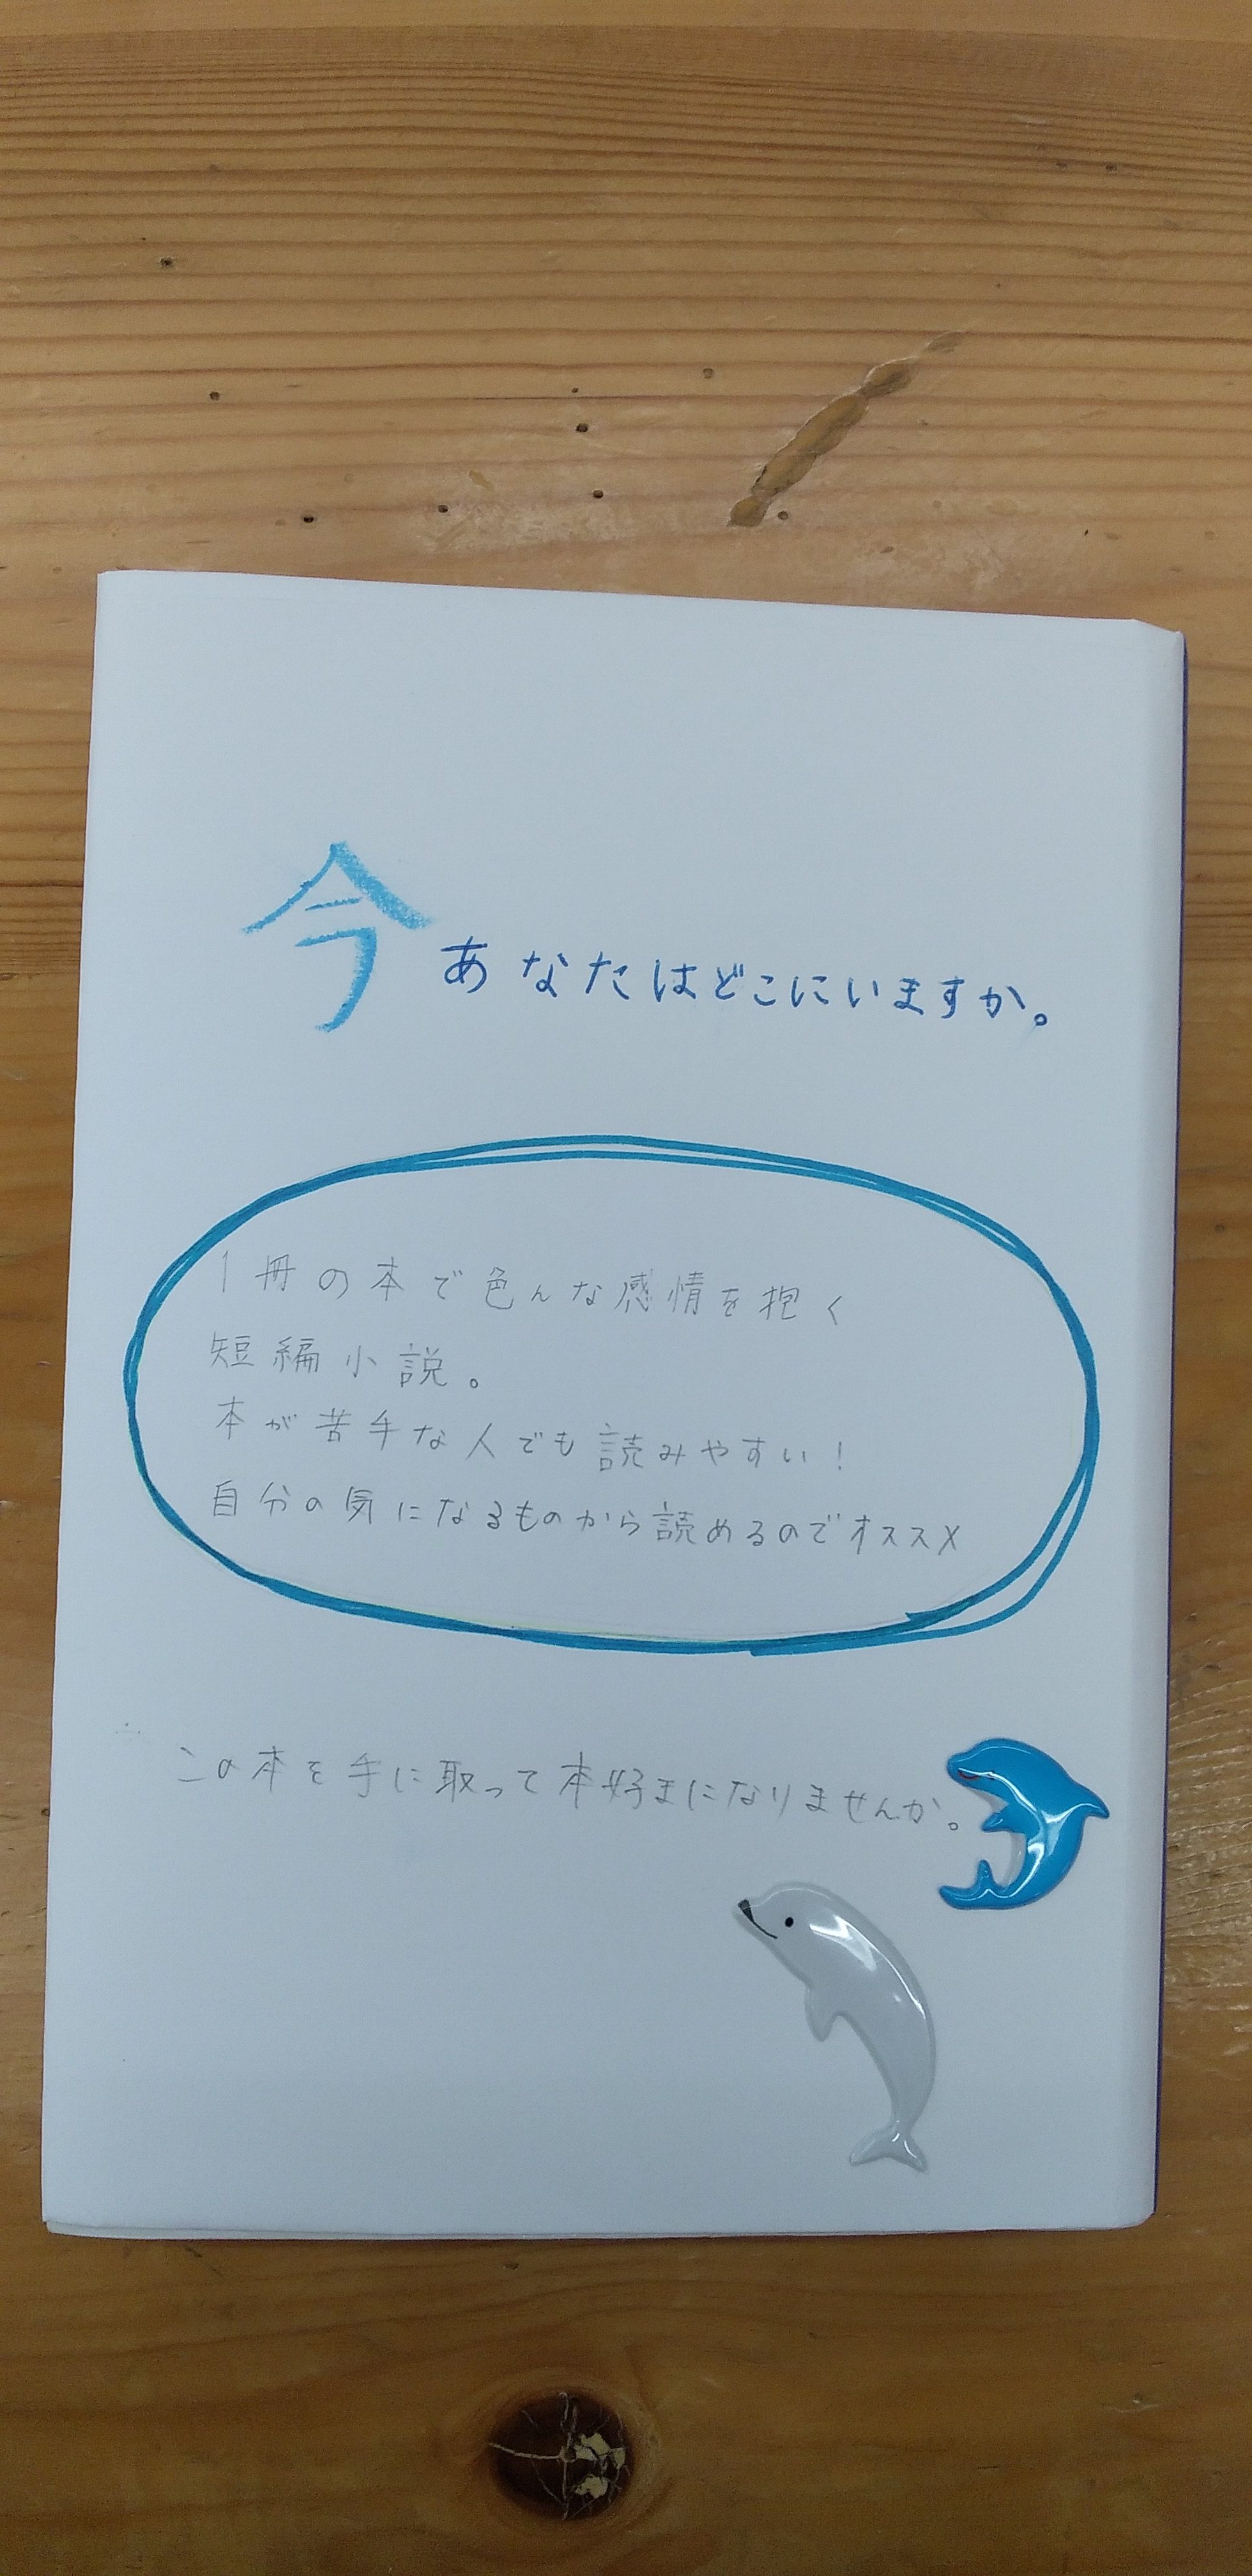 今あなたはどこにいますか。
1冊の本で色んな感情を抱く
短編小説。
本が苦手な人でも読みやすい!
自分の気になるものから読めるのでオススメ
この本を手に取って本好きになりませんか。